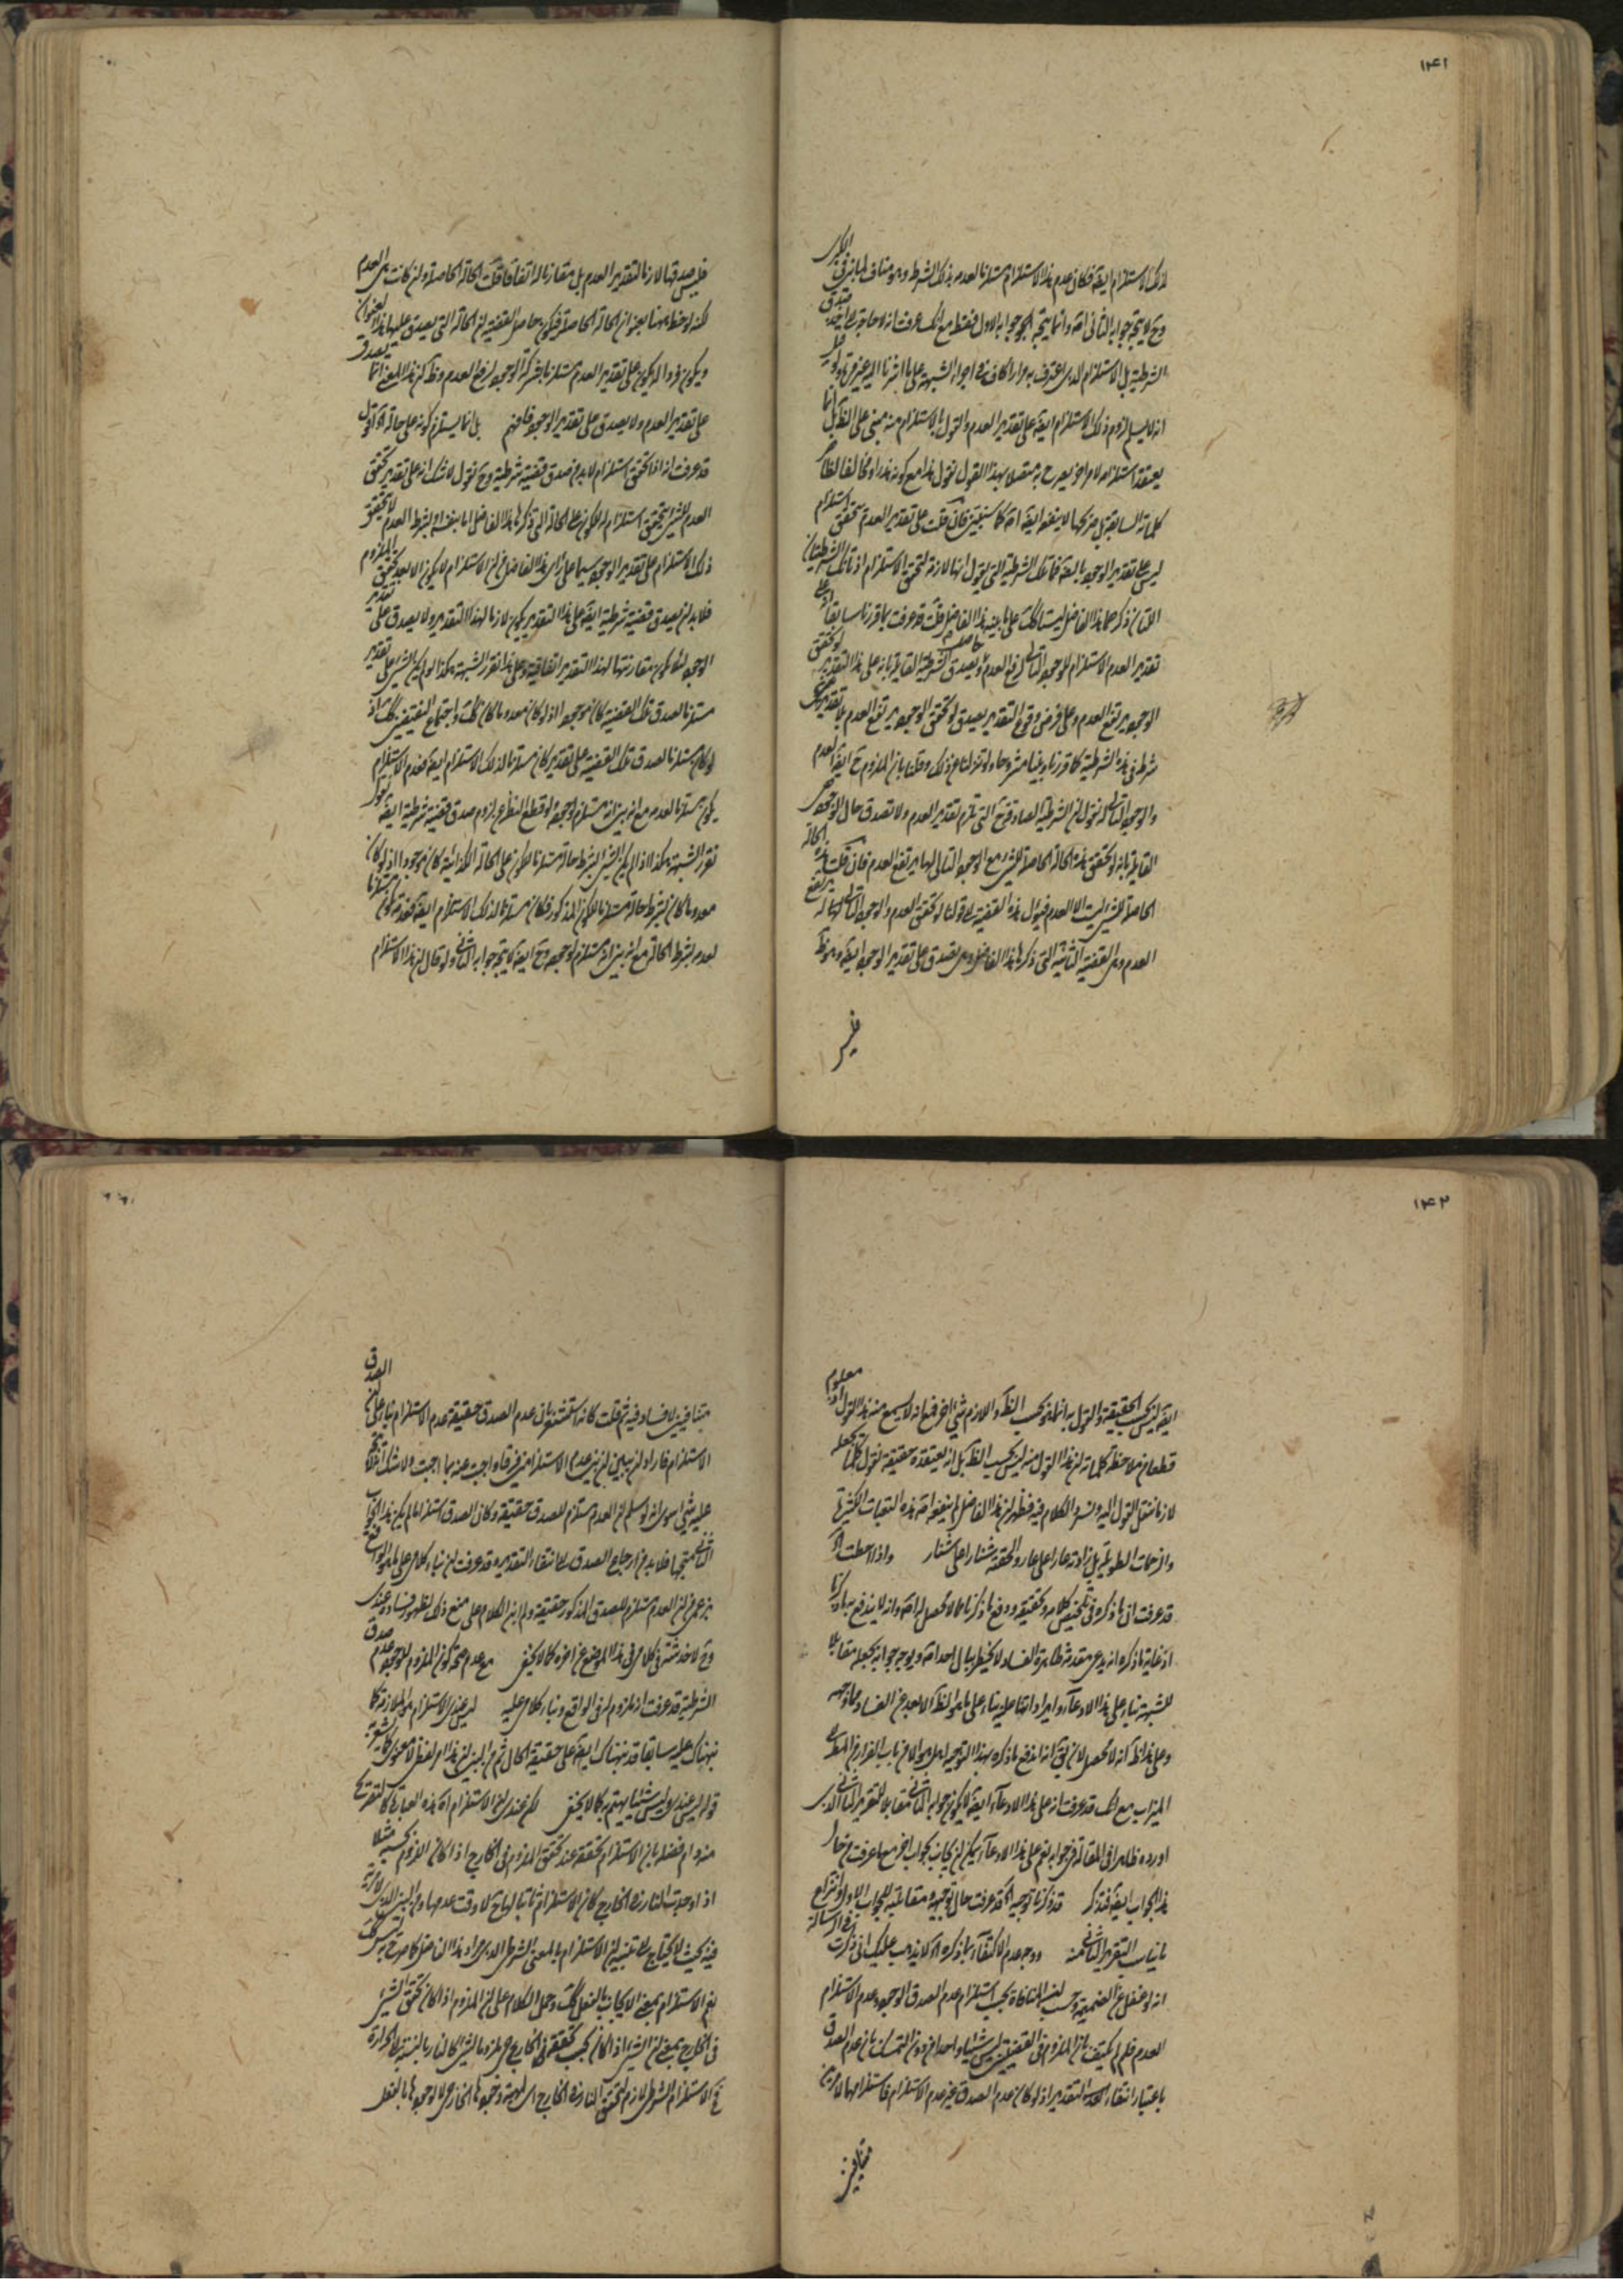 ۱۴۱
لذلك الاستلزام ايضا فكان عدم هذا الاستلزام مستلزما لعدمه بذلك الشرط وهو مناف
وح لا يتجه جوابه الثانى اصلا وانما يتجه جوابه الاول فقط مع انك عرفت انه لا حاجة
الشرطية بل الاستلزام الذى اعترف به مرارا كاف فى اجراء الشبهة على ما اشرنا اليه غير مرة
انه لا يسلم لزوم ذلك الاستلزام ايضا على تقدير العدم والقول بالاستلزام منه مبنى على الظ بل
يعتقد استلزامه لامر اخر يصرح به متصلا بهذا القول نقول هذا مع كونه مخالفا لظاهر
كلماته السابقة بل صريحها لا ينفعه ايضا اصلا كما سنبين فان قلت على تقدير العدم تحقق استلزام
ليس على تقدير الوجود البتة فما تلك الشرطية التى نقول انها لازمة لتحقق الاستلزام اذ تانك الشرطيتان
اللتان ذكرهما هذا الفاضل ليستا كك على ما بينه هذا الفاضل قلت قد عرفت بما قررنا سابقا
تقدير العدم الاستلزام للوجود التالى لرفع العدم ويصدق الشرطية القائلة بانه على هذا التقدير لو تحقق
الوجود يرتفع العدم وعلى فرض وقوع التقدير يصدق لو تحقق الوجود يرتفع العدم بلا تقدير
شرط فى هذه الشرطية كما قررنا وبينا مشروحا ولو تنزلنا عن ذلك وقلنا بان الملزوم ح ايضا العدم
والوجود التالى له نقول ان الشرطية الصادقة ح التى تلزم تقدير العدم ولا تصدق حال الوجود هى
القائلة بانه لو تحقق هذه الحالة الحاصلة للشىء مع الوجود التالى لها يرتفع العدم فان قلت هذه الحالة
الحاصلة للشىء ليست الا العدم فيؤل هذه القضية الى قولنا لو تحقق العدم والوجود التالى له يرتفع
العدم وهى القضية الثانية التى ذكرها هذا الفاضل وهى تصدق على تقدير الوجود ايضا وهو ظ
فليس
فليس صدقها لازما لتقدير العدم بل مقارنا له اتفاقا قلت الحالة الحاصلة وان كانت هى العدم
لكنه لوحظ ههنا بعنوان الحالة الحاصلة فيكون حاصل القضية ان الحالة التى يصدق عليها هذا العنوان
ويكون فردا له يكون على تقدير العدم مستلزما بشركة الوجود لرفع العدم وظ ان هذا المعنى انما يصدق
على تقدير العدم ولا يصدق على تقدير الوجود فافهم بل انما يستلزم كونه على حالة اه اقول
قد عرفت انه اذا تحقق استلزام لا بد من صدق قضية شرطية وح نقول لا شك انه على تقدير تحقق
العدم للشىء يتحقق استلزام له للكون على الحالة التى ذكرها هذا الفاضل اما بنفسه او بشرط العدم لا يتحقق
ذلك الاستلزام على تقدير الوجود سيما على راى هذا الفاضل من ان الاستلزام لا يكون الا بعد تحقق الملزوم
فلا بد ان يصدق قضية شرطية ايضا على هذا التقدير يكون لازما لهذا التقدير ولا يصدق على تقدير
الوجود لئلا يكون مقارنتها لهذا التقدير اتفاقية وعلى هذا نقرر الشبهة هكذا لو لم يكن الشىء على تقدير
مستلزما لصدق تلك القضية كان موجودا اذ لو كان معدوما كان كك واجتماع النقيضين كك اذ
لو كان مستلزما لصدق تلك القضية على تقدير كان مستلزما لذلك الاستلزام ايضا فعدم الاستلزام
يكون مستلزما لعدمه مع انه بين انه مستلزم لوجوده ولو قطع النظر عن لزوم صدق قضية شرطية ايضا نقول
نقرر الشبهة هكذا اذا لم يكن الشىء بشرط حالة مستلزما للكون على الحالة الكذائية كان موجودا اذ لو كان
معدوما كان بشرط حالة مستلزما للكون المذكور فكان مستلزما لذلك الاستلزام ايضا فعدمه يكون مستلزما
لعدمه بشرط الحالة مع انه بين انه مستلزم لوجوده وح ايضا لا يتجه جوابه الثانى ولو قال ان هذا الاستلزام
۱۴۲
ايضا ليس بحسب الحقيقة والقول به انما هو بحسب الظ واللازم شىء اخر فمع انه لا يسمع منه هذا القول اذ معلوم
قطعا من ملاحظة كلماته ان هذا القول منه ليس بحسب الظ بل انه يعتقده حقيقة نقول كلما تجعله
لازما ننقل القول اليه ونسرد الكلام فيه فظهر ان هذا الفاضل لم ينفعه اصلا هذه التعبات الكثيرة
والزحمات الطويلة بل زادته عارا على عار والحقته شنارا على شنار واذا احطت اه
قد عرفت ان ما ذكره فى تلخيص كلامه وتحقيقه ودفع ما ذكرنا مما لا محصل له اصلا وانه لا يندفع به ما ذكرنا
اذ غاية ما ذكره انه يدعى مقدمة ظاهرة الفساد لا يخطر ببال احد اصلا ويوجه جوابه بجعله مقابلا
للشبهة بناء على هذا الادعاء وايراداتنا عليه بناء على ما هو الظ الابعد عن الفساد مما وجهه
وعلى هذا ظ انه لا محصل لان يق انه اندفع ما ذكره بهذا التوجيه اهل هو الا من باب الفرار من المطر الى
الميزاب مع انك قد عرفت انه على هذا الادعاء ايضا لا يكون جوابه الثانى مقابلا للتقرير الثانى الذى
اورده ظاهرا فى المقالة فى جوابه نعم على هذا الادعاء يمكن ان يجاب بجواب اخر مع ما عرفت من حال
هذا الجواب ايضا فتذكر قد ذكرنا توجيه اه قد عرفت حال توجيهه ومقابلته للجواب الاول وانتزاع
ما يناسب التقرير الثانى منه ووجه عدم الاكتفاء بما ذكره اه لا يذهب عليك انى ذكرت فى الرسالة
انه لو غفل عن الضميمة وحسب ان المنافاة بحسب استلزام عدم الصدق الوجود وعدم الاستلزام
العدم فلم لم يكتف بان الملزوم فى القضيتين ليس شيئا واحدا من دون التمسك بان عدم الصدق
باعتبار انتفاء التقدير اذ لو كان عدم الصدق غير عدم الاستلزام فاستلزامهما لامرين
متنافيين
متنافيين لا فساد فيه ثم قلت كانه استشعر بان عدم الصدق حقيقة عدم الاستلزام بناء على ان الصدق
الاستلزام فاراد ان يبين ان بين عدمى الاستلزامين فرقا واجبت عنه بما اجبت ولا شك انه لا يتجه
عليه شىء سوى انه لو سلم ان العدم مستلزم للصدق حقيقة وكان الصدق استلزاما لم يكن هذا الجواب
الثانى متجها فلا بد من ارجاع الصدق الى انتفاء التقدير وقد عرفت ان بناء كلامى على ما هو الواقع
بزعمى من ان العدم مستلزم للصدق المذكور حقيقة ولم ابن الكلام على منع ذلك لظهور فساده عندى
وح لا خدشة فى كلامى فى هذا الموضع عن اخره كما لا يخفى مع عدم صحة كون الملزوم للوجود عدم صدق
الشرطية قد عرفت انه ملزوم له فى الواقع وبناء كلامى عليه ليس عندى الاستلزام هو الملازمة كما
نبهناك عليه سابقا قد نبهناك ايضا على حقيقة الحال ثم من البين ان هذا امر لفظى لا معنوى
قوله ليس عندى وليس شيئا يهتم به كما لا يخفى لكن عندى ان الاستلزام اه هذه العبارة كالتصريح
منه وان فضله بان الاستلزام تحققه عند تحقق الملزوم فى الخارج اذا كان اللزوم بحسبه مثلا
اذا وجدت النار فى الخارج كان الاستلزام ثابتا لها ح لا وقت عدمها ومن البين الذى لا مرية
فيه بحيث لا يحتاج الى تنبيه ان الاستلزام بالمعنى الشرطى الذى هو مراد هذا الفاضل كما صرح به ليس كك
نعم الاستلزام بمعنى الايجاب بالفعل كك وحمل الكلام على ان الملزوم اذا كان تحقق الشىء
فى الخارج بمعنى ان الشىء اذا كان بحسب تحققه فى الخارج ملزوما لشىء كالنار بالنسبة الى الحرارة
فح الاستلزام الشرطى لازم لتحقق النار فى الخارج اى لمهية وجودها الخارجى لا وجودها بالفعل